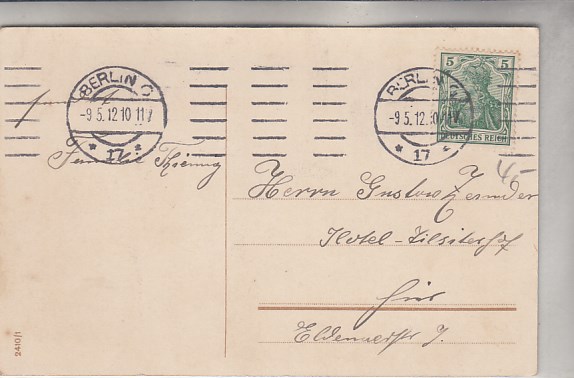 BERLIN O
-9.5.12.10-11V
* 17 *
BERLIN O
-9.5.12.10-11V
* 17 *
5 5
DEUTSCHES REICH
45
Familie
Herrn Gustav Zander
Hotel-Tilsiterhof
hier
Eldenaerstr 7.
2410/1